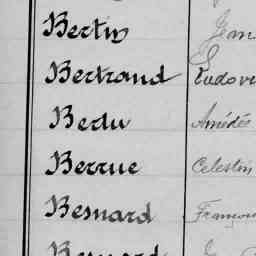 Bertin Jean
Bertrand Ludovic
Bedu Amédée
Berrue Celestin
Besnard François
Besnard